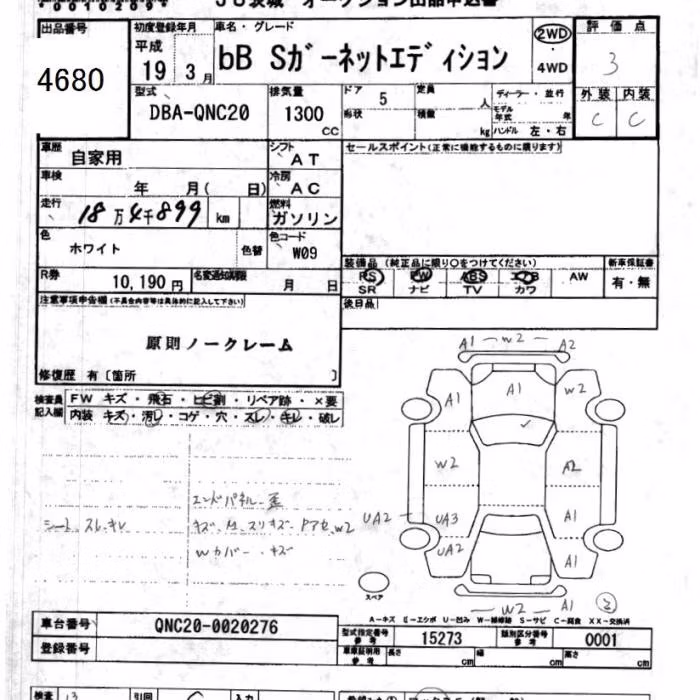 JU茨城 オークション出品申込書
出品番号 初度登録年月 車名・グレード 評価点
4680 平成 19 3月 bB Sガーネットエディション 2WD ・ 4WD 3
型式 排気量 ドア 定員 ディーラー・並行 外装 内装
DBA-QNC20 1300 CC 5 人 モデル年式 年 C C
形状 積載 kg ハンドル 左・右
車歴 自家用 シフト AT セールスポイント(正常に機能するものに限ります)
車検 年 月( 日) 冷房 AC
走行 18万4千899 km 燃料 ガソリン
色 ホワイト 色替 色コード W09
装備品(純正品に限り○をつけてください) 新車保証書
PS PW ABS エアB AW 有・無
SR ナビ TV カワ
R券 10,190円 名変通知期限 月 日
後日品
注意事項申告欄(不具合内容等は具体的に記入して下さい)
原則ノークレーム
修復歴 有〔箇所 〕
検査員 FW キズ・飛石・ヒビ割・リペア跡・×要
記入欄 内装 キズ・汚レ・コゲ・穴・スレ・キレ・破レ
A1 W2 A2
A1 A1 W2
W2 A2
エンドパネル 歪
シート スレ、キレ
UA2 UA3 A1
UA2 A1
Wカバー・キズ
W2 A1 2
スペア
A-キズ E-エクボ U-凹み W-補修跡 S-サビ C-腐食 XX-交換済
車台番号 QNC20-0020276
型式指定番号 参考 15273 類別区分番号 参考 0001
登録番号
車庫証明用 参考 長さ cm 幅 cm 高さ cm
検査 13 引回 入力